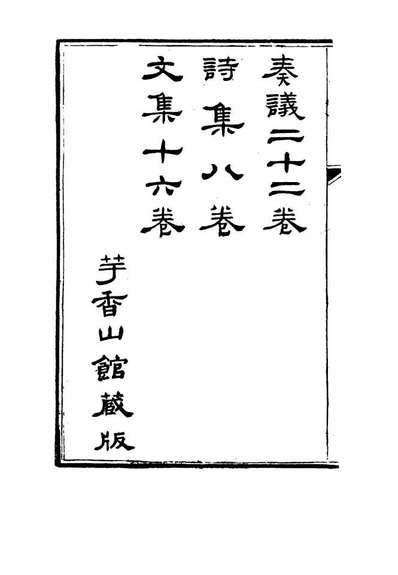 奏議二十二卷
詩集八卷
文集十六卷
芋香山館藏版